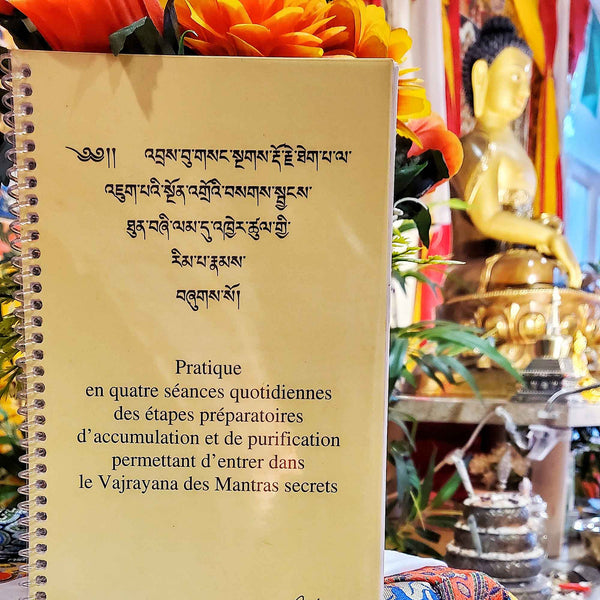 ༄༅།། འབྲས་བུ་གསང་སྔགས་རྡོ་རྗེ་ཐེག་པ་ལ་
འཇུག་པའི་སྔོན་འགྲོའི་བསགས་སྦྱངས་
ཐུན་བཞི་ལམ་དུ་འཁྱེར་ཚུལ་གྱི་
རིམ་པ་རྣམས་
བཞུགས་སོ།
Pratique
en quatre séances quotidiennes
des étapes préparatoires
d’accumulation et de purification
permettant d’entrer dans
le Vajrayana des Mantras secrets